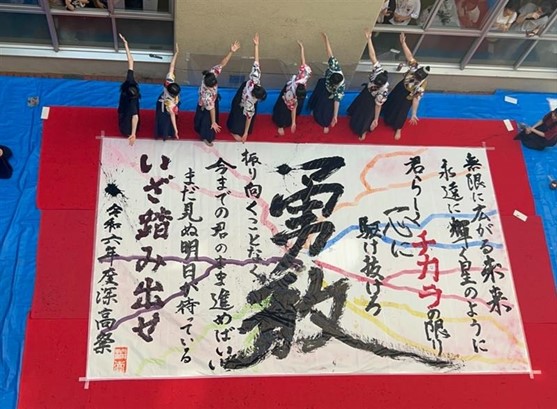 無限に広がる未来
永遠に輝く星のように
君らしくチカラの限り
一心に
駆け抜けろ
勇敢
振り向くことなく
今までの君のまま進めばいい
まだ見ぬ明日が待っている
いざ踏み出せ
令和六年度深高祭